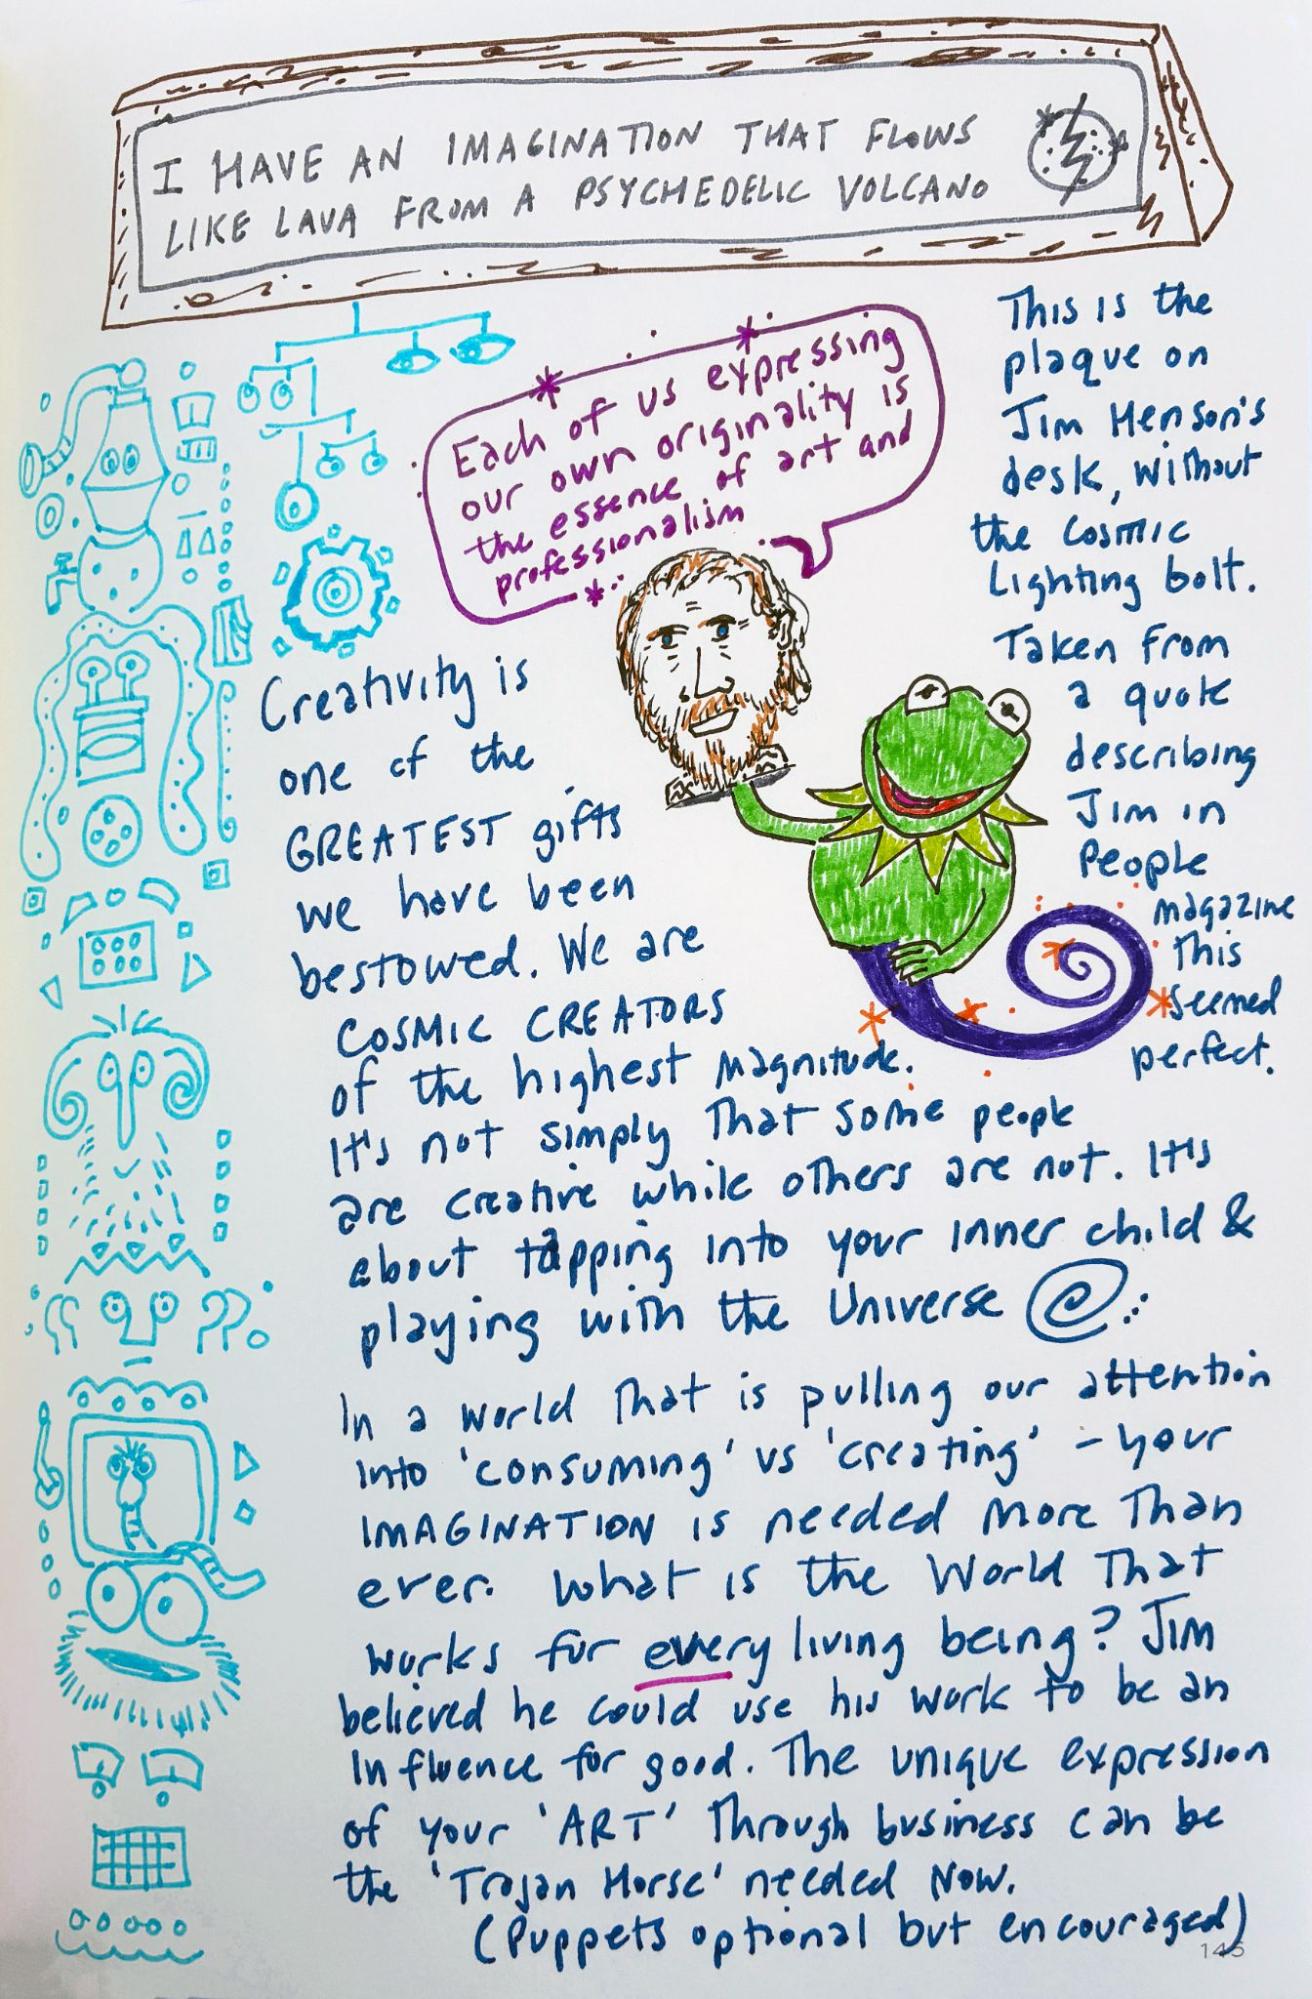 I HAVE AN IMAGINATION THAT FLOWS
LIKE LAVA FROM A PSYCHEDELIC VOLCANO
This is the
plaque on
Jim Henson's
desk, without
the cosmic
Lighting bolt.
Taken from
a quote
describing
Jim in
People
magazine
This
seemed
perfect.
Each of us expressing
our own originality is
the essence of art and
professionalism
Creativity is
one of the
GREATEST gifts
we have been
bestowed. We are
COSMIC CREATORS
of the highest magnitude.
It's not simply that some people
are creative while others are not. It's
about tapping into your inner child &
playing with the Universe
In a world that is pulling our attention
into 'consuming' vs 'creating' - your
IMAGINATION is needed more than
ever. What is the World that
works for every living being? Jim
believed he could use his work to be an
influence for good. The unique expression
of your 'ART' through business can be
the 'Trojan Horse' needed now.
(Puppets optional but encouraged)
145